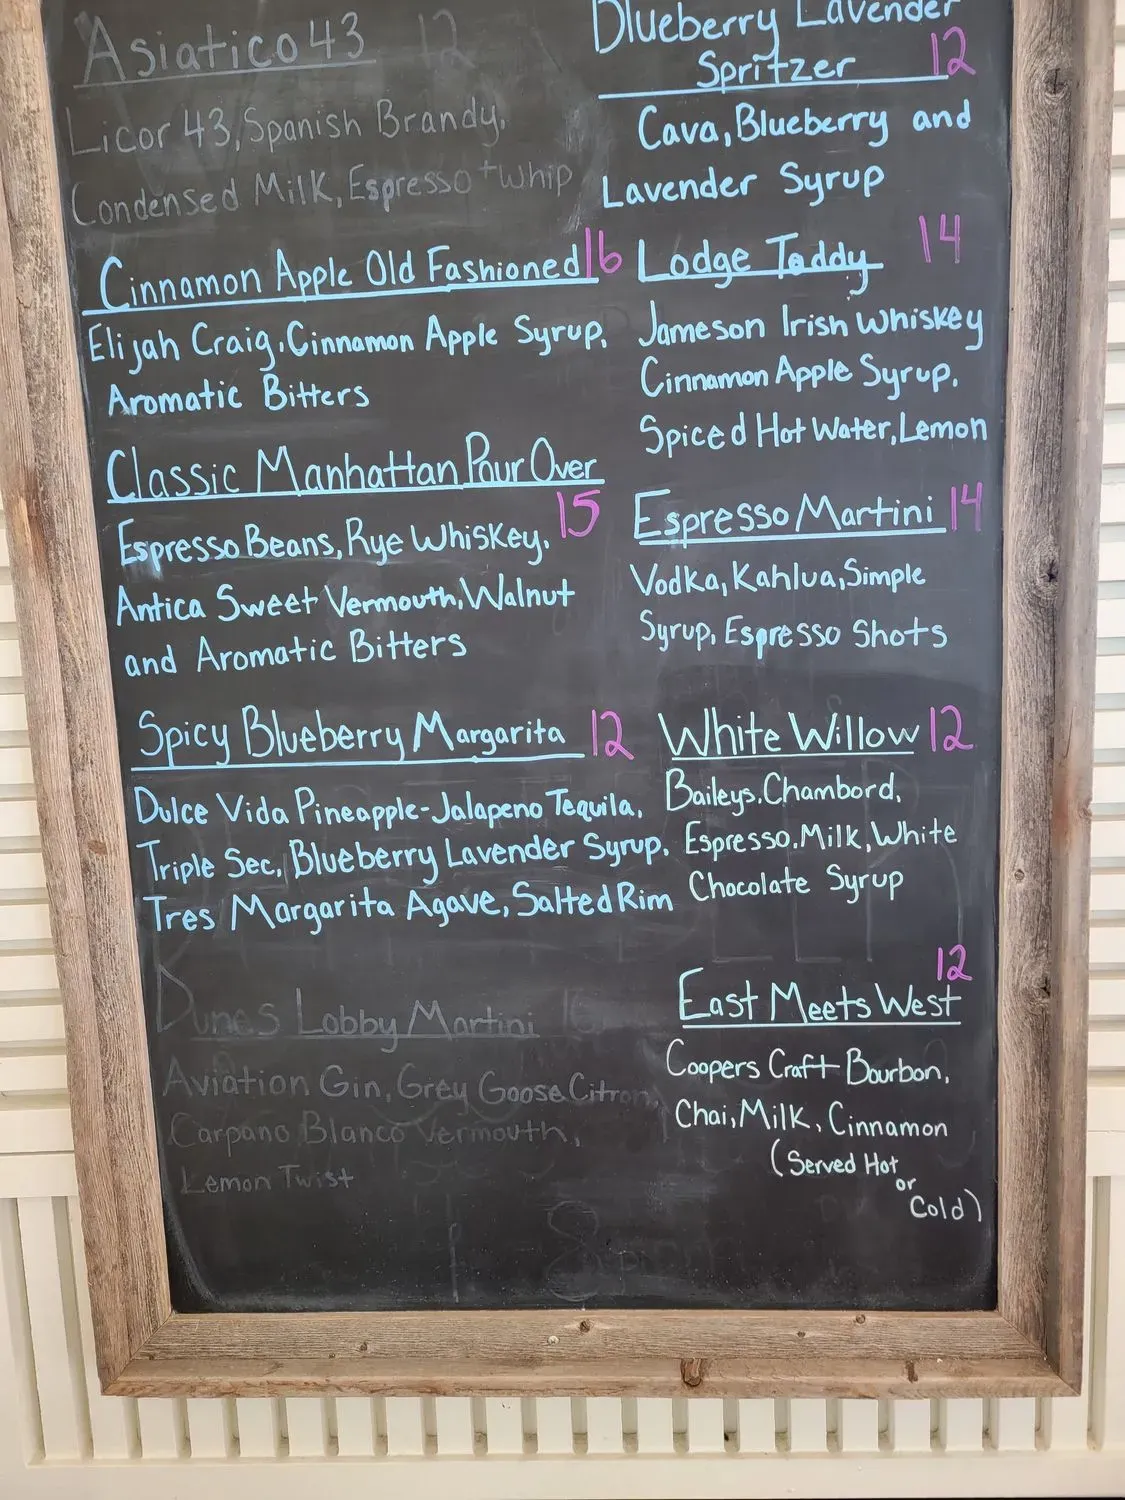 Asiatico 43 12
Licor 43, Spanish Brandy,
Condensed Milk, Espresso + Whip
Cinnamon Apple Old Fashioned 16
Elijah Craig, Cinnamon Apple Syrup,
Aromatic Bitters
Classic Manhattan Pour Over
15
Espresso Beans, Rye Whiskey,
Antica Sweet Vermouth, Walnut
and Aromatic Bitters
Spicy Blueberry Margarita 12
Dulce Vida Pineapple-Jalapeno Tequila,
Triple Sec, Blueberry Lavender Syrup,
Tres Margarita Agave, Salted Rim
Dunes Lobby Martini
Aviation Gin, Grey Goose Citron,
Carpano Blanco Vermouth,
Lemon Twist
Blueberry Lavender
Spritzer 12
Cava, Blueberry and
Lavender Syrup
Lodge Toddy 14
Jameson Irish Whiskey
Cinnamon Apple Syrup,
Spiced Hot Water, Lemon
Espresso Martini 14
Vodka, Kahlua, Simple
Syrup, Espresso Shots
White Willow 12
Baileys, Chambord,
Espresso, Milk, White
Chocolate Syrup
12
East Meets West
Coopers Craft Bourbon,
Chai, Milk, Cinnamon
(Served Hot
or
Cold)